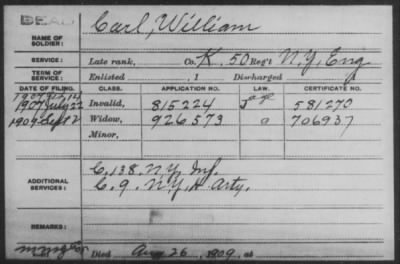 DEAD
Carl, William
NAME OF SOLDIER:
SERVICE: Late rank, Co. K, 50 Reg't N.Y. Eng
TERM OF SERVICE: Enlisted , 1 Discharged
DATE OF FILING. CLASS. APPLICATION NO. LAW. CERTIFICATE NO.
1907 July 22 Invalid, 815224 581270
1909 Sept 2 Widow, 926573 a 706937
Minor,
C. 138. N.Y. Inf.
ADDITIONAL SERVICES: C. 9. N.Y. H Arty.
REMARKS:
Died Aug 26, 1909, at